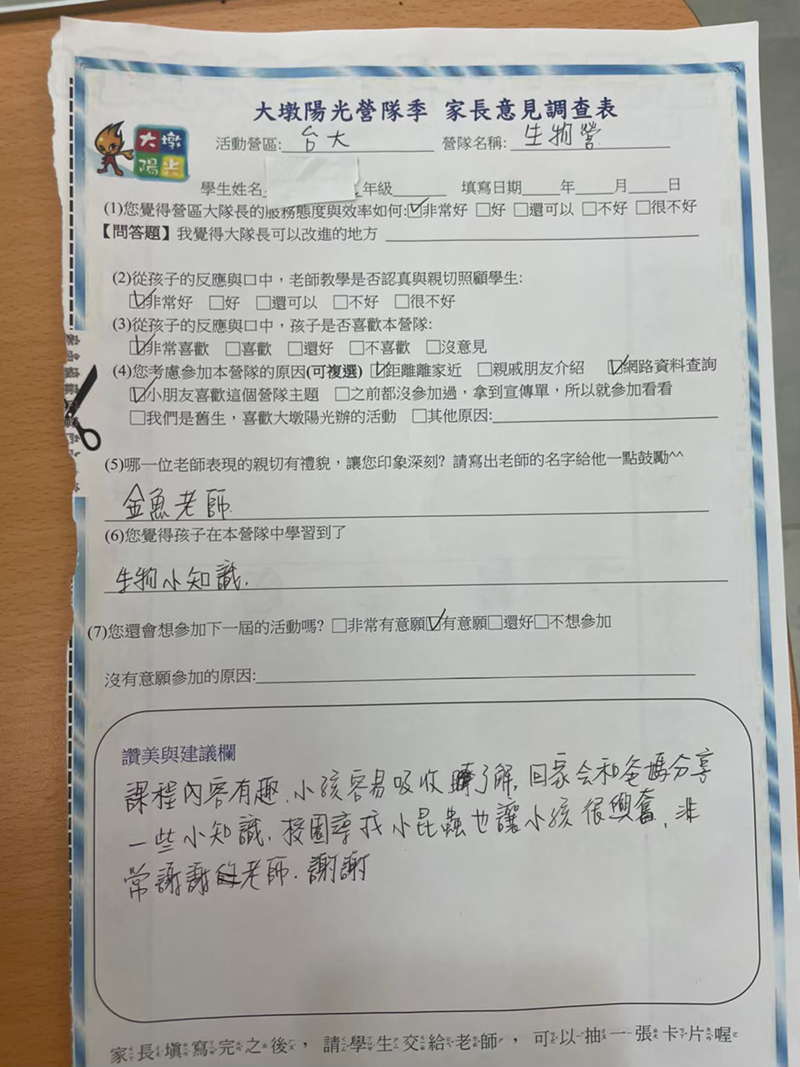 大墩陽光營隊季 家長意見調查表
大墩
陽光
活動營區:台大 營隊名稱:生物營
學生姓名 年級 填寫日期 年 月 日
(1)您覺得營區大隊長的服務態度與效率如何:☑非常好 □好 □還可以 □不好 □很不好
【問答題】我覺得大隊長可以改進的地方
(2)從孩子的反應與口中,老師教學是否認真與親切照顧學生:
☑非常好 □好 □還可以 □不好 □很不好
(3)從孩子的反應與口中,孩子是否喜歡本營隊:
☑非常喜歡 □喜歡 □還好 □不喜歡 □沒意見
(4)您考慮參加本營隊的原因(可複選) ☑距離離家近 □親戚朋友介紹 ☑網路資料查詢
☑小朋友喜歡這個營隊主題 □之前都沒參加過,拿到宣傳單,所以就參加看看
□我們是舊生,喜歡大墩陽光辦的活動 □其他原因:
(5)哪一位老師表現的親切有禮貌,讓您印象深刻? 請寫出老師的名字給他一點鼓勵^^
金魚老師
(6)您覺得孩子在本營隊中學習到了
生物小知識.
(7)您還會想參加下一屆的活動嗎? □非常有意願☑有意願□還好□不想參加
沒有意願參加的原因:
讚美與建議欄
課程內容有趣.小孩容易吸收了解.回家会和爸媽分享
一些小知識.校園尋找小昆蟲也讓小孩很興奮.非
常謝謝老師.謝謝
家長填寫完之後,請學生交給老師,可以抽一張卡片喔